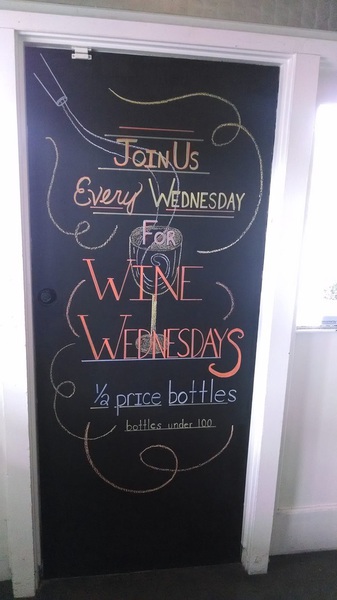 Join Us
Every Wednesday
For
Wine
Wednesdays
1/2 price bottles
bottles under 100